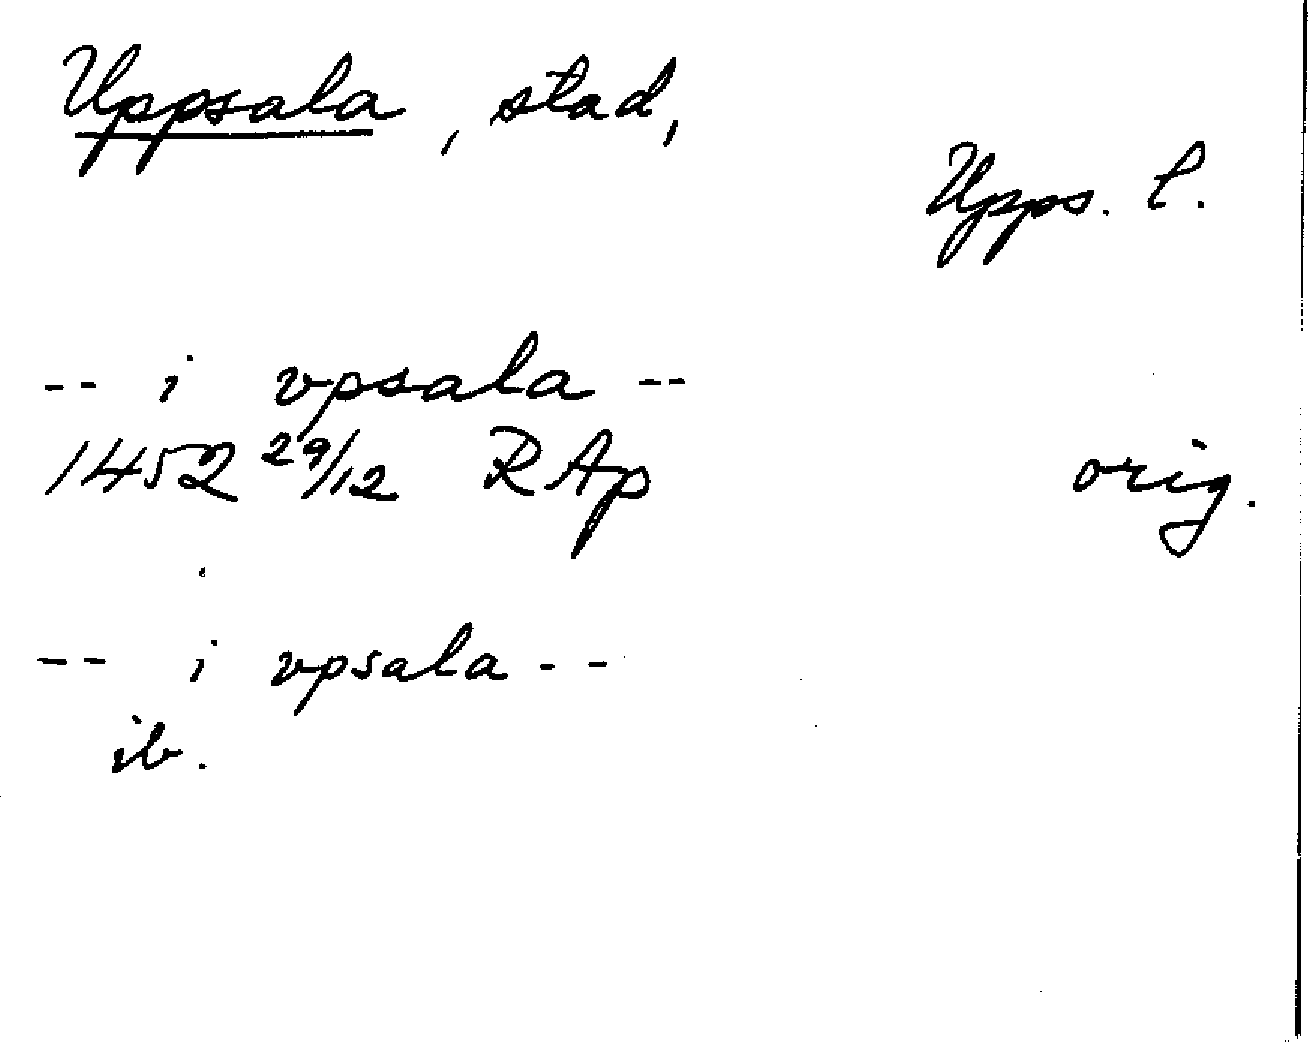 Uppsala, stad,
Upps. l.
-- i vpsala --
1452 29/12 RAp orig.
-- i vpsala --
ib.